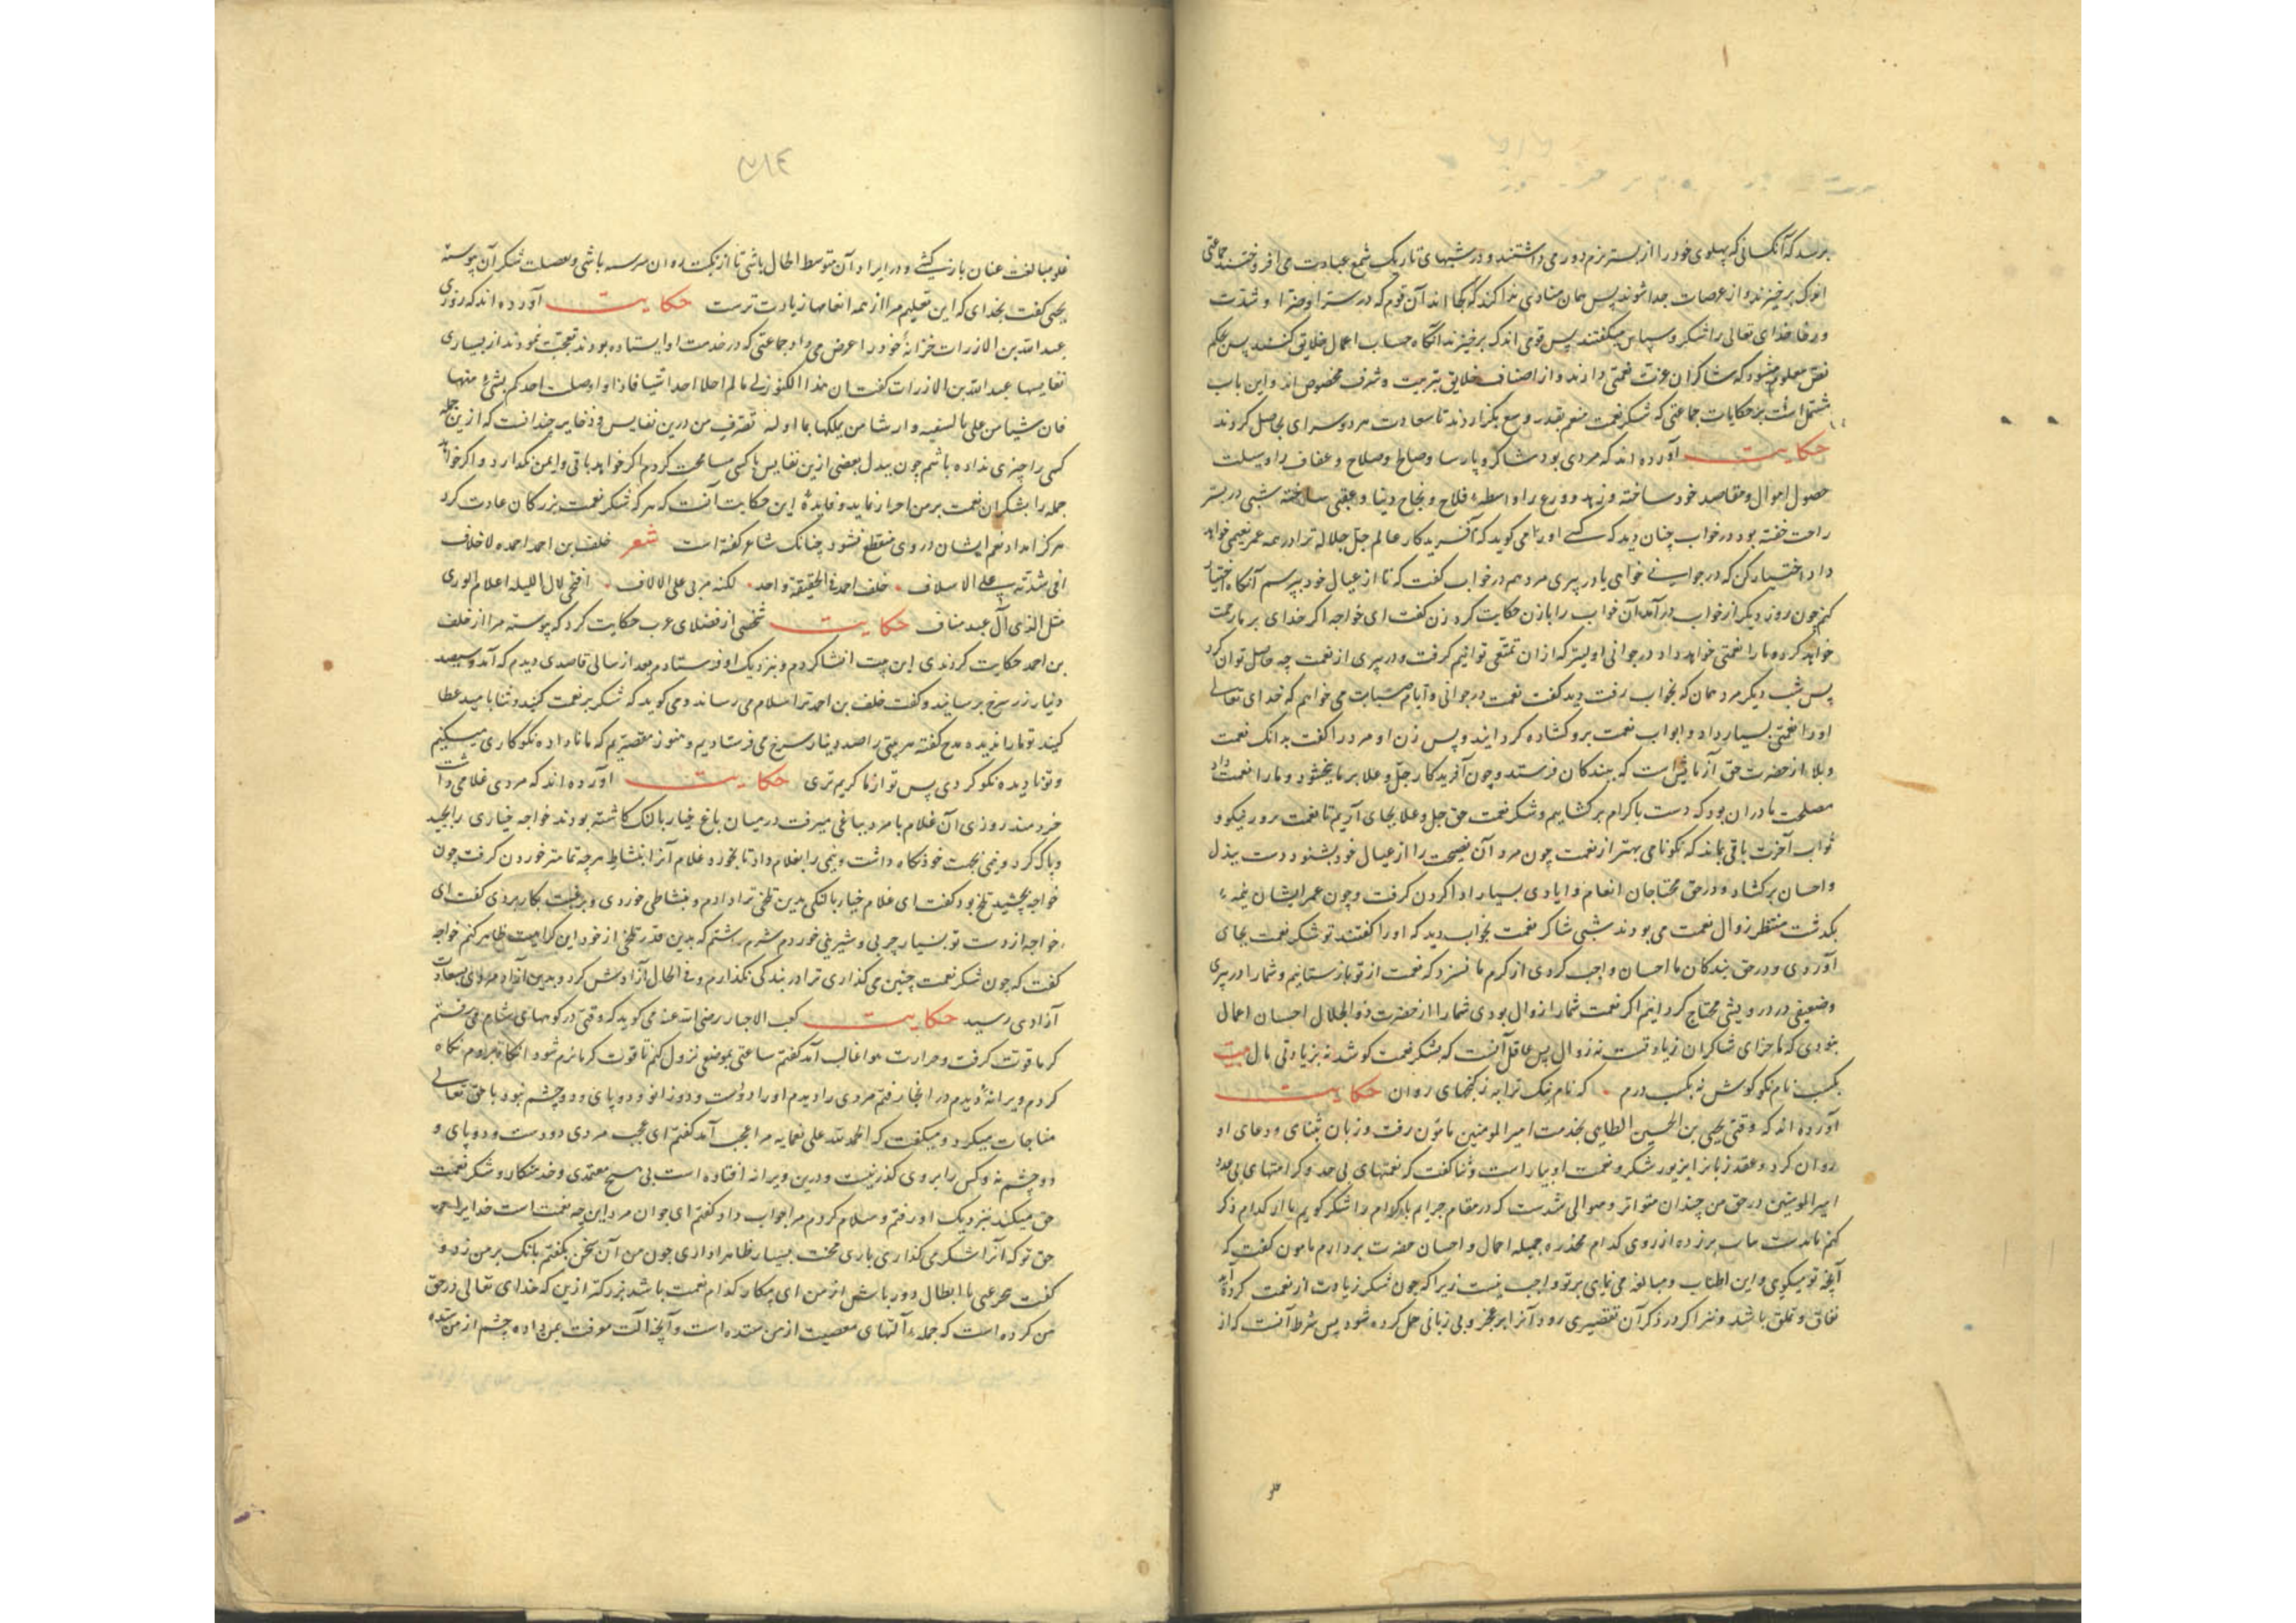 برسد که آنکسانی که پهلوی خود را از بستر نرم دور می داشتند و در شبهای تاریک شمع عبادت می افروختند جماعتی
اندک برخیزند و از عرصات جدا شوند پس همان منادی ندا کند که کجا اند آن قوم که در سرّا و ضرّا و شدّت
و رخا خدای تعالی را شکر و سپاس میگفتند پس قومی اندک برخیزند آنگاه حساب اعمال خلایق کنند پس بحکم
نقل معلوم میشود که شاکران عزت نعمتی دارند و از اصناف خلایق بتربیت و شرف مخصوص اند و این باب
مشتمل است بر حکایات جماعتی که شکر نعمت منعم بقدر وسع بگزاردند تا سعادت هر دو سرای بحاصل کردند
حکایت آورده اند که مردی بود شاکر و پارسا و صلاح و عفاف را وسیلت
حصول اموال و مقاصد خود ساخته و زهد و ورع را واسطهٔ فلاح و نجاح دنیا و عقبی ساخته شبی در بستر
راحت خفته بود در خواب چنان دید که کسی او را می گوید که آفریدگار عالم جل جلاله ترا در همه عمر نعیمی خواهد
داد اختیار کن که در جوانی خواهی یا در پیری مرد هم در خواب گفت که تا از عیال خود بپرسم آنگاه اختیار
کنم چون روز دیگر از خواب درآمد آن خواب را با زن حکایت کرد زن گفت ای خواجه اگر خدای بر ما رحمت
خواهد کرد و ما را نعمتی خواهد داد در جوانی اولیتر که ازان تمتعی توانیم گرفت و در پیری از نعمت چه حاصل توان کرد
پس شب دیگر مرد همان که بخواب رفت دید گفت نعمت در جوانی و ایام می خواهم که خدای تعالی
او را نعمتی بسیار داد و ابواب نعمت برو گشاده گردانید و پس زن او مرد را گفت بدانک نعمت
و بلا از حضرت حق آزمایش است که ببندگان فرستد و چون آفریدگار جل و علا بر ما ببخشود و ما را نعمت داد
مصلحت ما دران بود که دست باکرام برگشاییم و شکر نعمت حق جل و علا بجای آریم تا نعمت مرور نیکو و
ثواب آخرت باقی بماند که نکونامی بهتر از نعمت چون مرد آن نصیحت را از عیال خود بشنود دست ببذل
و احسان برگشاد و در حق محتاجان انعام و ایادی بسیار ادا کردن گرفت و چون عمر ایشان نیمهٔ
بگذشت منتظر زوال نعمت می بودند شبی شاکر نعمت بخواب دید که او را گفتند تو شکر نعمت بجای
آوردی و در حق بندگان ما احسان واجب کردی از کرم ما نسزد که نعمت از تو بازستانیم و شما را در پیری
و ضعیفی در درویشی محتاج گردانیم اگر نعمت شما را زوال بودی شما را از حضرت ذو الجلال احسان اعمال
نبودی که ما جزای شاکران زیادتست نه زوال پس عاقل آنست که بشکر نعمت کوشد نه بزیادتی مال بیت
بکسب نام نکو کوش نه بکسب درم • که نام نیک ترا به ز گنجهای روان حکایت
آورده اند که وقتی یحیی بن الحسین الطایی بخدمت امیر المومنین مامون رفت و زبان بثنای و دعای او
روان کرد و عقد زبان را بزیور شکر و نعمت او بیاراست و ثنا گفت که نعمتهای بی حد و کرامتهای بی عدد
امیر المومنین در حق من چندان متواتر و متوالی شدست که در مقام باکدام را شکر گویم یا از کدام ذکر
کنم ... از روی کدام جمیله اجمال و احسان حضرت بردارم مامون گفت که
آنچه تو میگویی و این اطناب و مبالغه می نمایی بر تو واجب نیست زیرا که چون شکر زیادت از نعمت کرده آید
نفاق و تملق باشد و نیز اگر در ذکر آن تقصیری رود آنرا بر عجز و بی زبانی حمل کرده شود پس شرط آنست که از
غلو مبالغت عنان باز کشی و در ایراد آن متوسط الحال باشی تا از باشی و بصلت شکر آن پیوسته
یحیی گفت بخدای که این تعلیم مرا از همه انعامها زیادت ترست حکایت آورده اند که روزی
عبد الله بن الازرات خزانهٔ خود را عرض می داد جماعتی که در خدمت او ایستاده بودند تعجب نمودند از بسیاری
نفایسها عبد الله بن الازرات گفت ان هذا الکنوز لی مالم احد کم بشیٔ منها
فان شیا من علی من یملکها تصرف من درین نفایس و ذخایر چندانست که ازین جمله
کسی را چیزی نداده باشم چون ببذل بعضی ازین نفایس با کسی مسامحت کردم اگر خواهد باقی و ایمن نگذارد و اگر خواهد
جمله را بشکران نعمت بر من احرار نماید و فایدهٔ این حکایت آنست که هر که شکر نعمت بزرگان عادت کرد
هرگز امداد نعم ایشان از وی منقطع نشود چنانک شاعر گفته است شعر خلف بن احمد احمد الاخلاف
علی الاسلاف • خلف احمد فی الحقیقة واحد • لکنه مربی علی الالاف • اضحی لال اللیله اعلام الوری
مثل الذی آل عبد مناف حکایت شخصی از فضلای عرب حکایت کرد که پیوسته مرا از خلف
بن احمد حکایت کردندی این بیت انشا کردم و بنزدیک او فرستادم بعد از سالی قاصدی دیدم که آمد و سیصد
دینار زر سرخ برسانید و گفت خلف بن احمد ترا سلام می رساند و می گوید که شکر بر نعمت کنید و ثنا بامید عطا
کنید تو ما را نادیده مدح گفته هر بیتی را صد دینار سرخ می فرستادیم و هنوز مقصریم که ما ناداده نکوکاری میکنیم
و تو نادیده نکو کردی پس تو از ما کریم تری حکایت آورده اند که مردی غلامی داشت
خردمند روزی آن غلام با مرد بباغی میرفت در میان باغ خیار بالنک کاشته بودند خواجه خیاری را بچید
و پاک کرد و نیمی بجهت خود نگاه داشت و نیمی را بغلام داد تا بخورد غلام آنرا بنشاط هرچه تمامتر خوردن گرفت چون
خواجه بچشید تلخ بود گفت ای غلام خیار بالنکی بدین تلخی ترا دادم و بنشاطی خوردی و برغبت بکار بردی گفت ای
خواجه از دست تو بسیار چربی و شیرینی خوردم شرم داشتم که بدین قدر تلخی از خود این کراهیت ظاهر کنم خواجه
گفت که چون شکر نعمت چنین می گذاری ترا در بندگی نگذارم و فی الحال آزادش کرد و بدین آزاد مردی بسعادت
آزادی رسید حکایت کعب الاحبار رضی الله عنه می گوید که وقتی در کوههای شام می رفتم
گرما قوت گرفت و حرارت هوا غالب آمد گفتم ساعتی بموضعی نزول کنم تا قوت گرما نرم شود آنگاه بروم نگاه
کردم ویرانهٔ دیدم در انجا رفتم مردی را دیدم او را دو دست و دو زانو و دو پای و دو چشم نبود با حق تعالی
مناجات میکرد و میگفت که الحمد لله علی نعمایه مرا عجب آمد گفتم ای عجب مردی دو دست و دو پای و
دو چشم نه و کس را بروی گذر نیست و درین ویرانه افتاده است بی هیچ معتمدی و خدمتکار و شکر نعمت
حق میکند بنزدیک او رفتم و سلام کردم مرا جواب داد گفتم ای جوان مرد این چه نعمت است خدایرا
حق تو که آنرا شکر می گذاری باری محنت بسیار ظاهر داری چون من آن سخن بگفتم بانک بر من زد و
گفت یا ابطال دور باش از من ای بیکار کدام نعمت باشد بزرکتر ازین که خدای تعالی در حق
من کرده است که جملهٔ آلتهای معصیت از من ستده است و آنچه آلت معرفت بمن داده چشم از من ستده